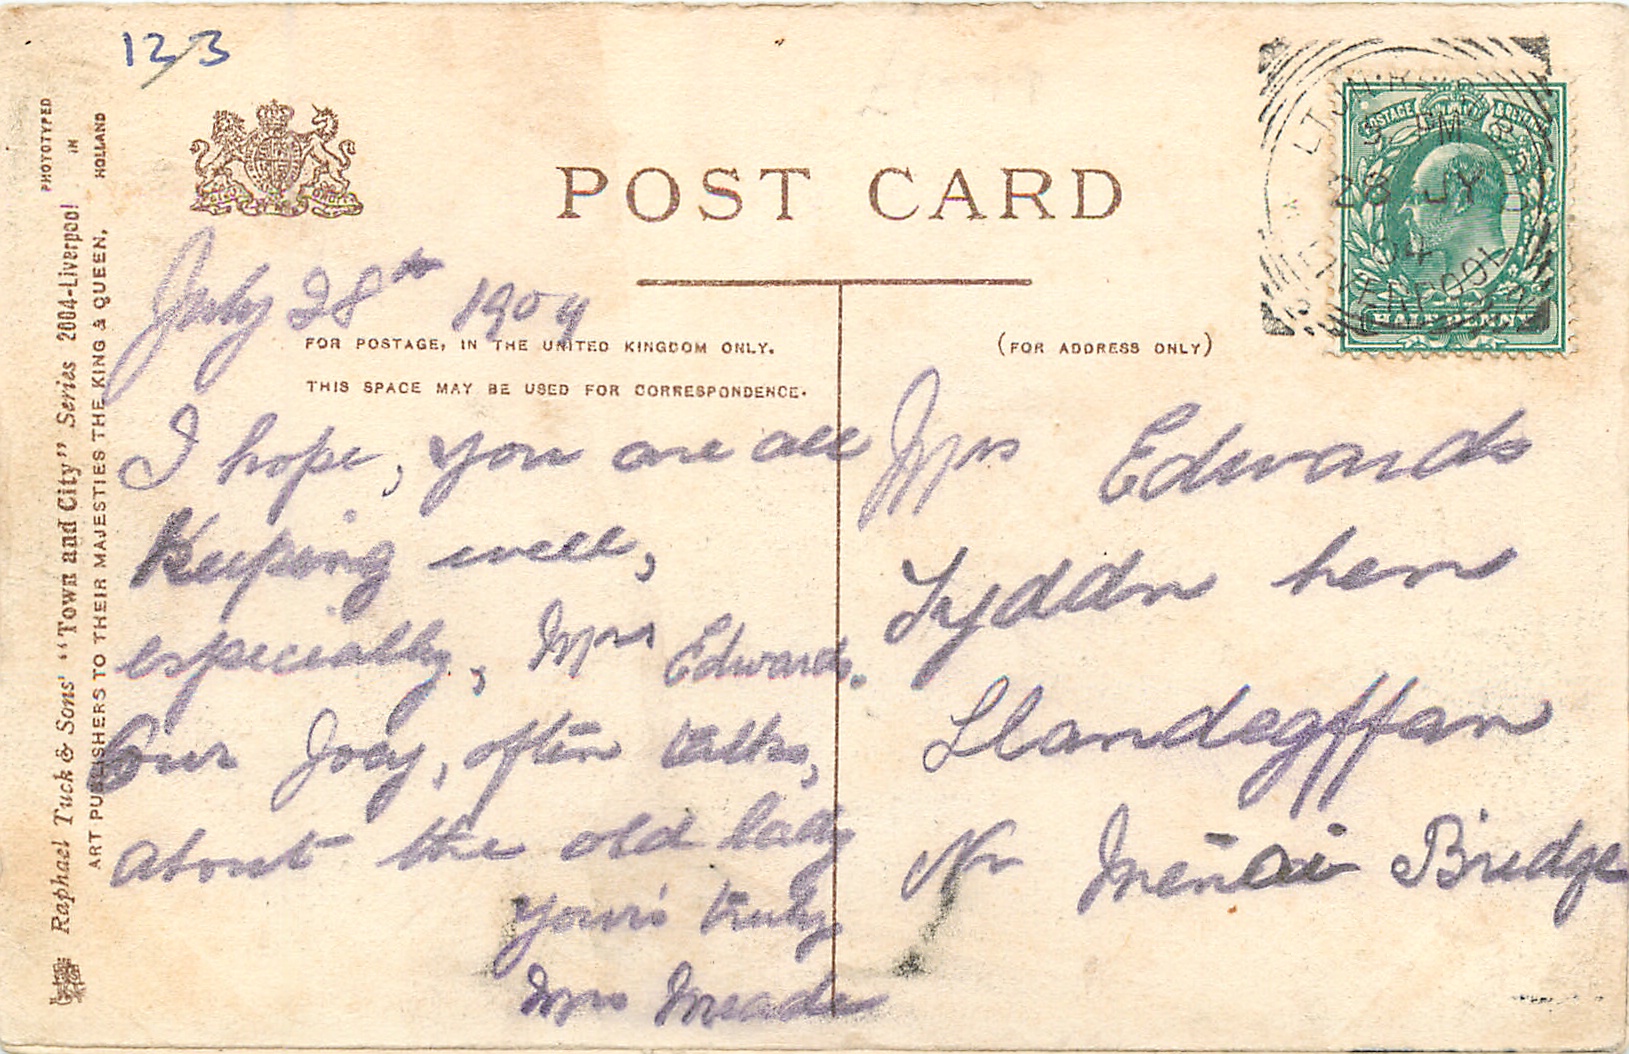 123
POST CARD
July 28th 1904
FOR POSTAGE, IN THE UNITED KINGDOM ONLY.
THIS SPACE MAY BE USED FOR CORRESPONDENCE.
(FOR ADDRESS ONLY)
I hope, you are all
Keeping well,
especially, Mrs Edwards.
Our Joey, often talks,
about the old lady
your's truly
Mrs Meade
Mrs Edwards
Tyddn hen
Llandegffan
Nr Menai Bridge
POSTAGE & REVENUE
HALF PENNY
PM
28 JY
04
Raphael Tuck & Sons' "Town and City" Series 2004-Liverpool
ART PUBLISHERS TO THEIR MAJESTIES THE KING & QUEEN.
PHOTOTYPED
IN
HOLLAND